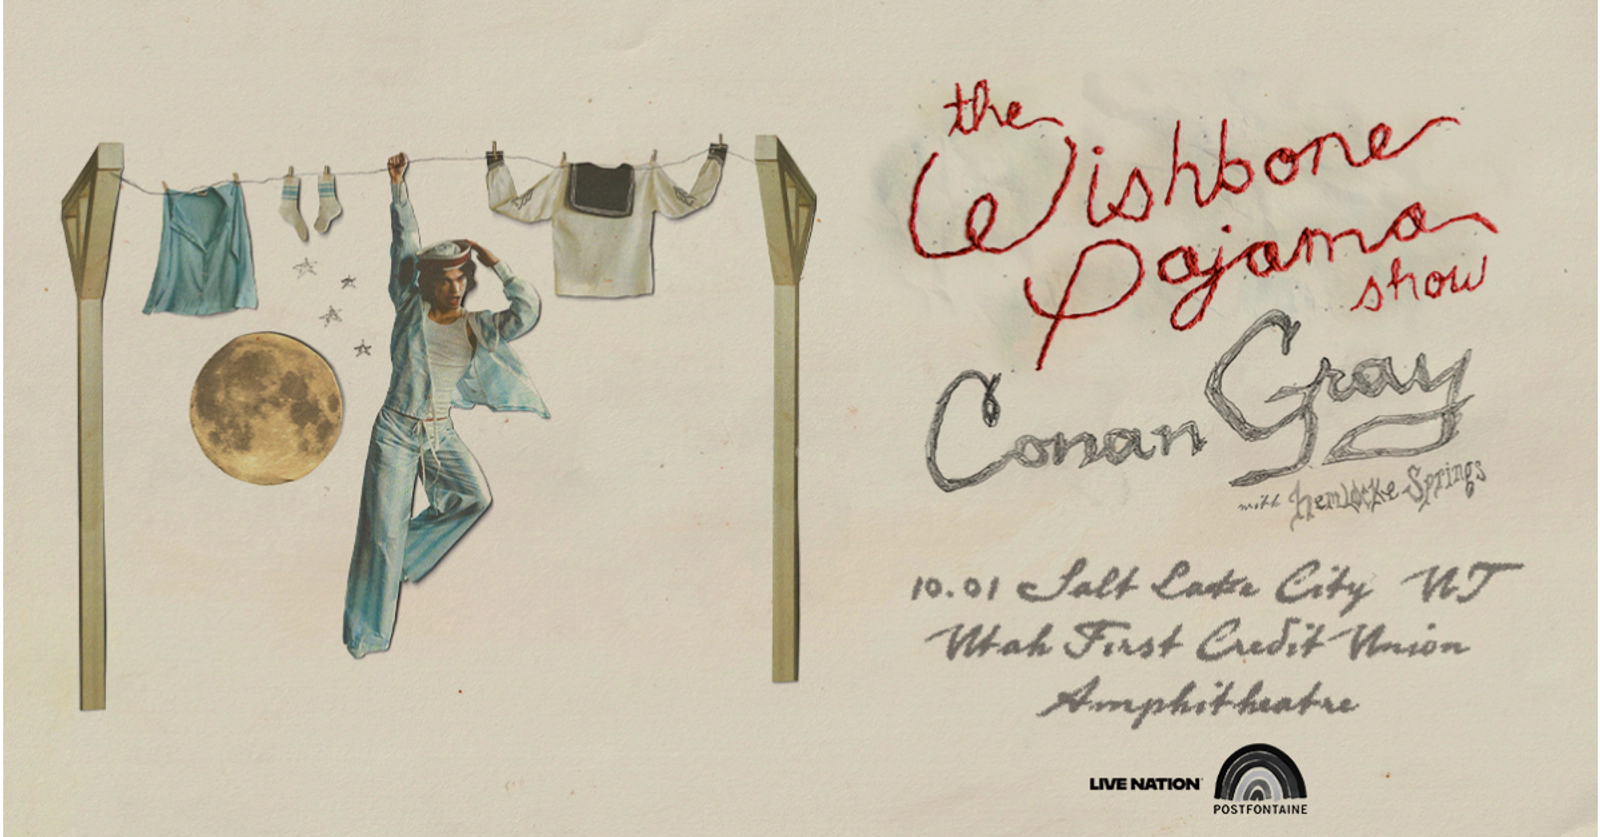 the
Wishbone
Pajama
show
Conan Gray
with Hemlocke Springs
10.01 Salt Lake City UT
Utah First Credit Union
Amphitheatre
LIVE NATION
POSTFONTAINE